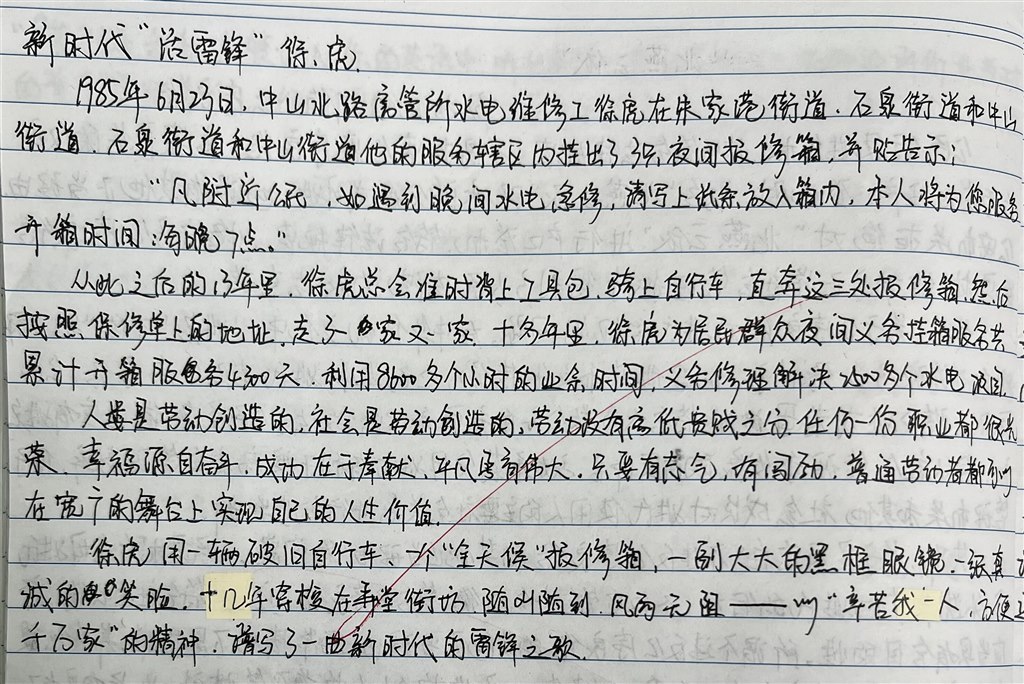 新时代“活雷锋”徐虎.
1985年6月23日,中山北路房管所水电维修工徐虎在朱家湾街道.石泉街道和中山
街道.石泉街道和中山街道他的服务辖区内挂出了3只夜间报修箱,并贴告示:
“凡附近公民,如遇到晚间水电急修,请写上纸条放入箱内,本人将为您服务
开箱时间:每晚7点。”
从此之后的13年里,徐虎总会准时背上工具包,骑上自行车,直奔这三处报修箱,然后
按照保修单上的地址,走了一家又一家.十多年里,徐虎为居民群众夜间义务挂箱服务共
累计开箱服务4300天.利用8600多个小时的业余时间,义务修理解决2500多个水电
人类是劳动创造的,社会是劳动创造的,劳动没有高低贵贱之分.任何一份职业都很光
荣.幸福源自奋斗,成功在于奉献,平凡造就伟大.只要有志气,有闯劲,普通劳动者都可以
在宽广的舞台上实现自己的人生价值.
徐虎用一辆破旧自行车、一个“全天候”报修箱,一副大大的黑框眼镜.一张真
诚的笑脸,十几年穿梭在街坊 随叫随到.风雨无阻——以“辛苦我一人,方便
千万家”的精神.谱写了一曲新时代的雷锋之歌.